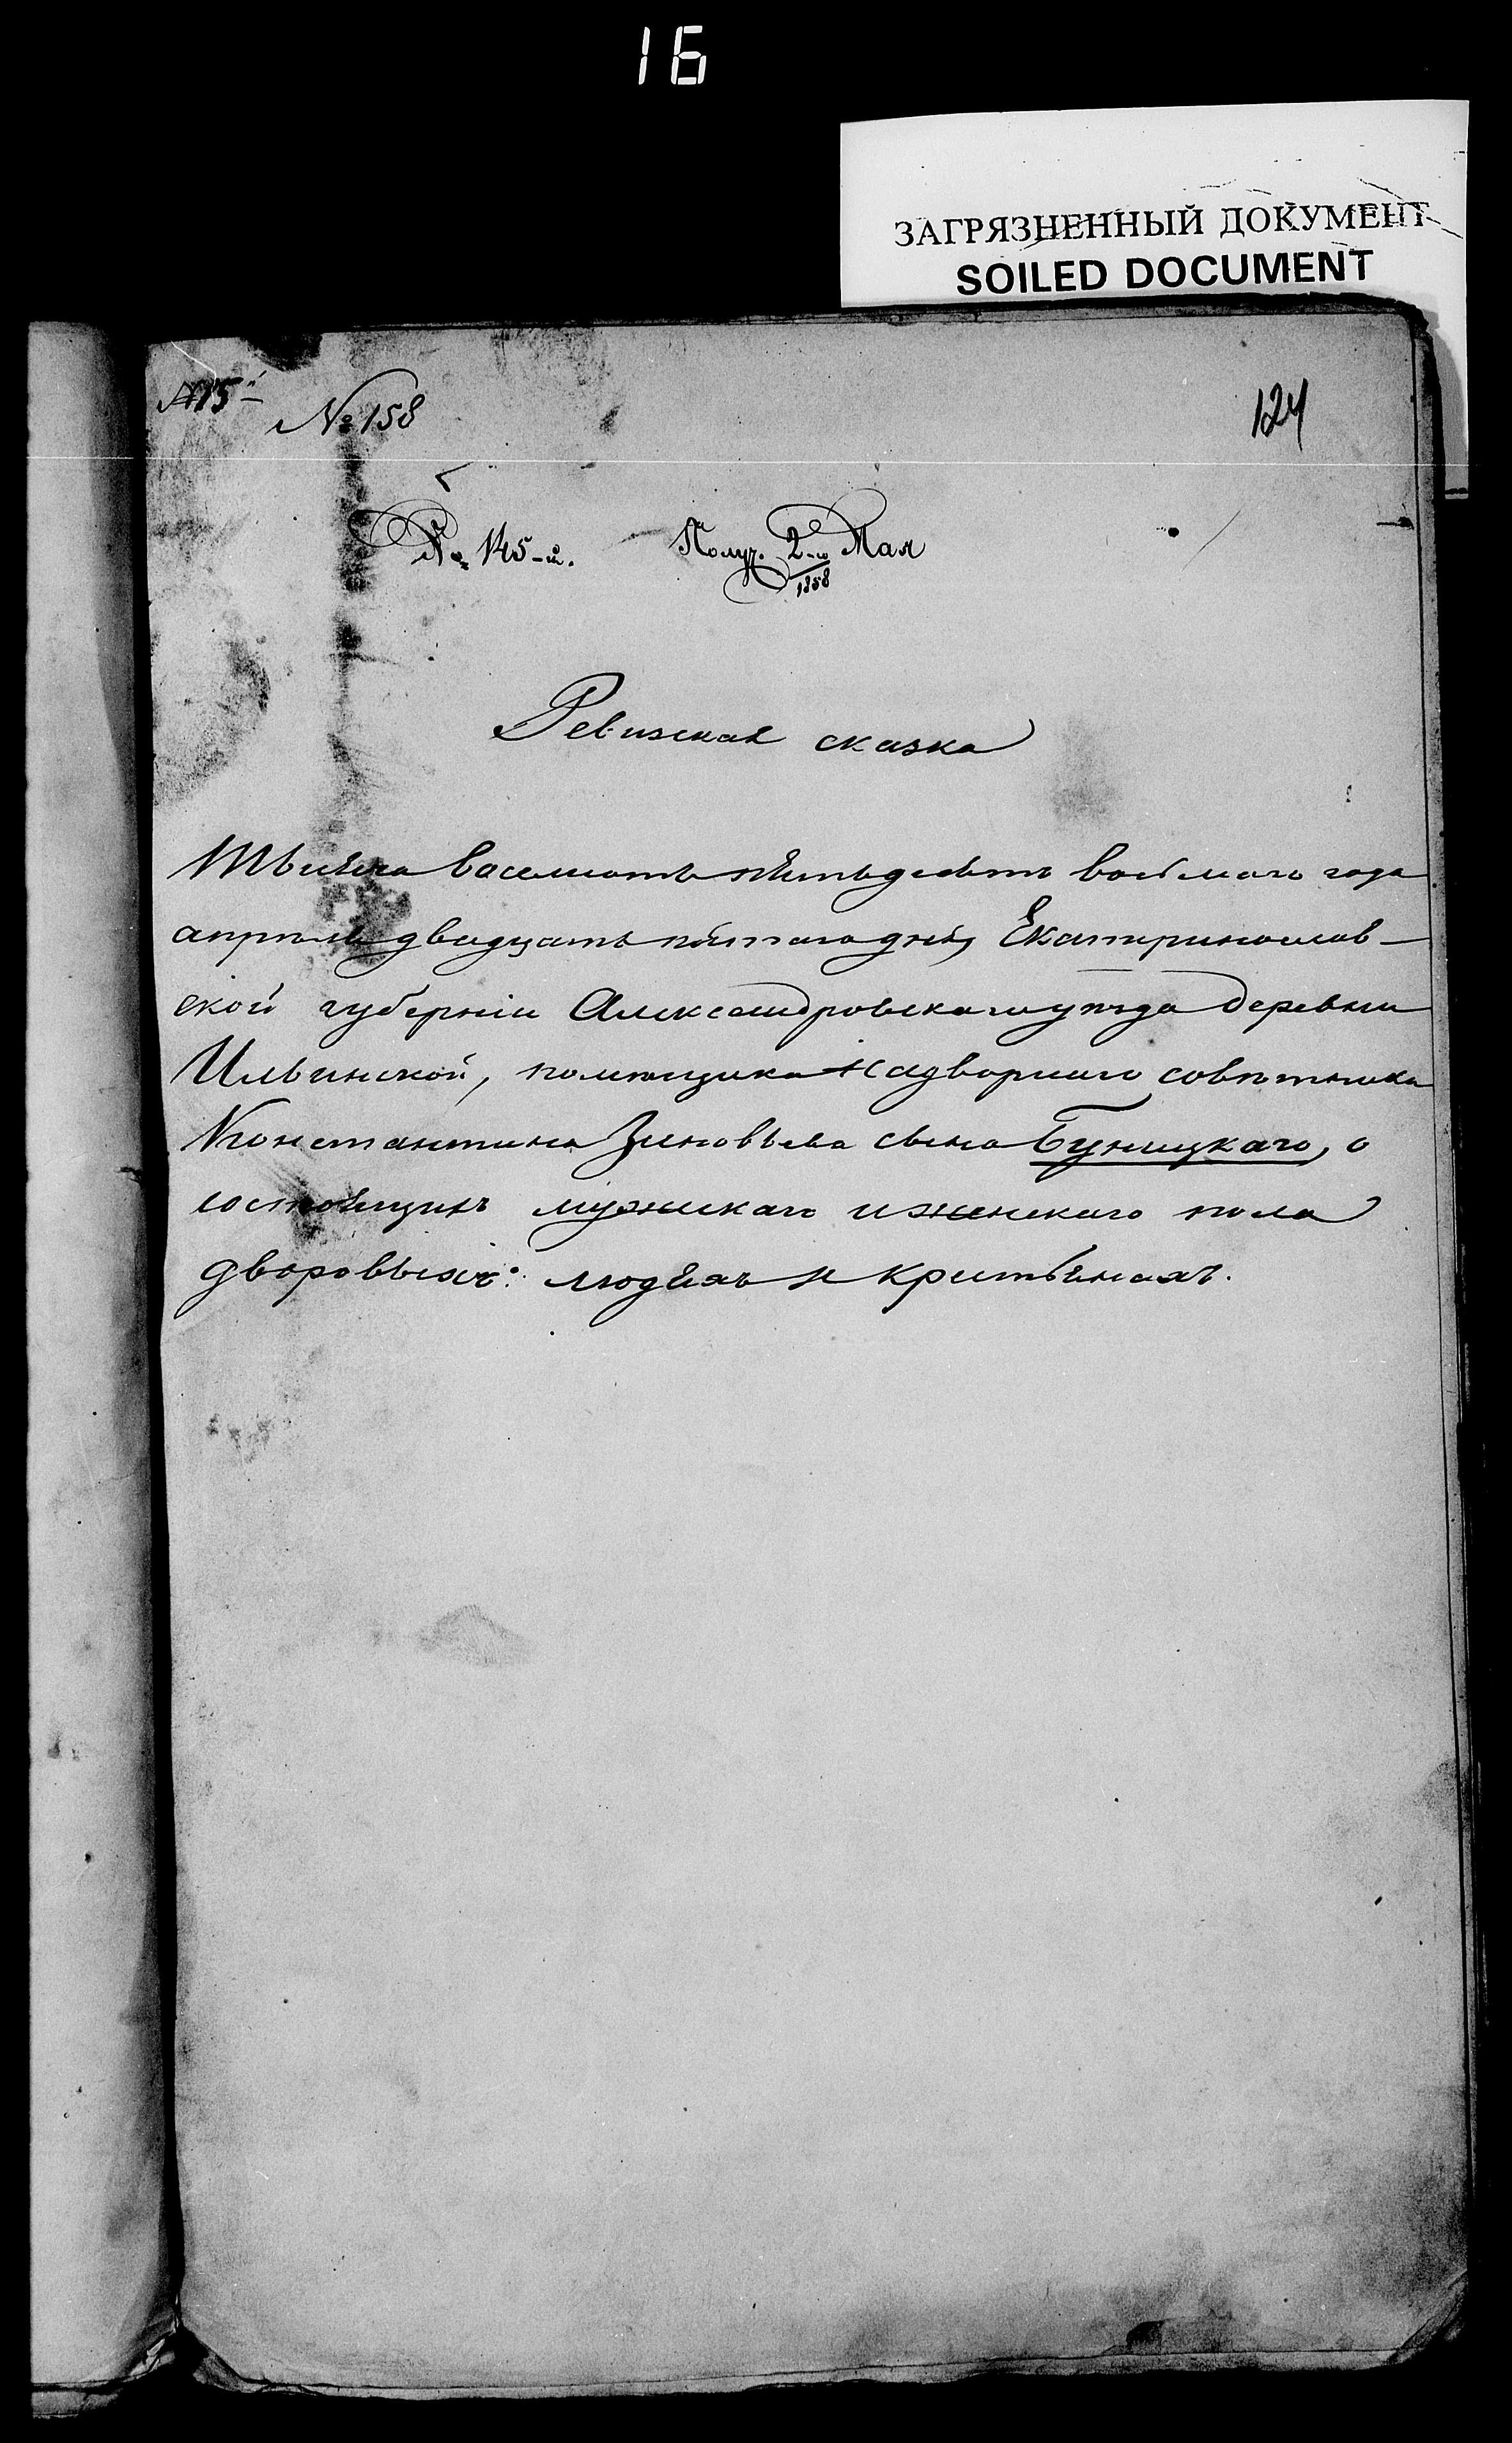 16
ЗАГРЯЗНЕННЫЙ ДОКУМЕНТ
SOILED DOCUMENT
№ 158
124
№ 145-й. Получ. 2-го Мая
1858
Ревизская сказка
Тысяча восемьсотъ пятьдесятъ восьмаго года
апрѣля двадцать пятаго дня, Екатеринослав-
ской губерніи Александровскаго уѣзда деревни
Ильинской, помѣщика Надворнаго совѣтника
Константина Зиновьева сына Буницкаго, о
состоящихъ мужескаго и женскаго пола
дворовыхъ людяхъ и крестьянахъ.